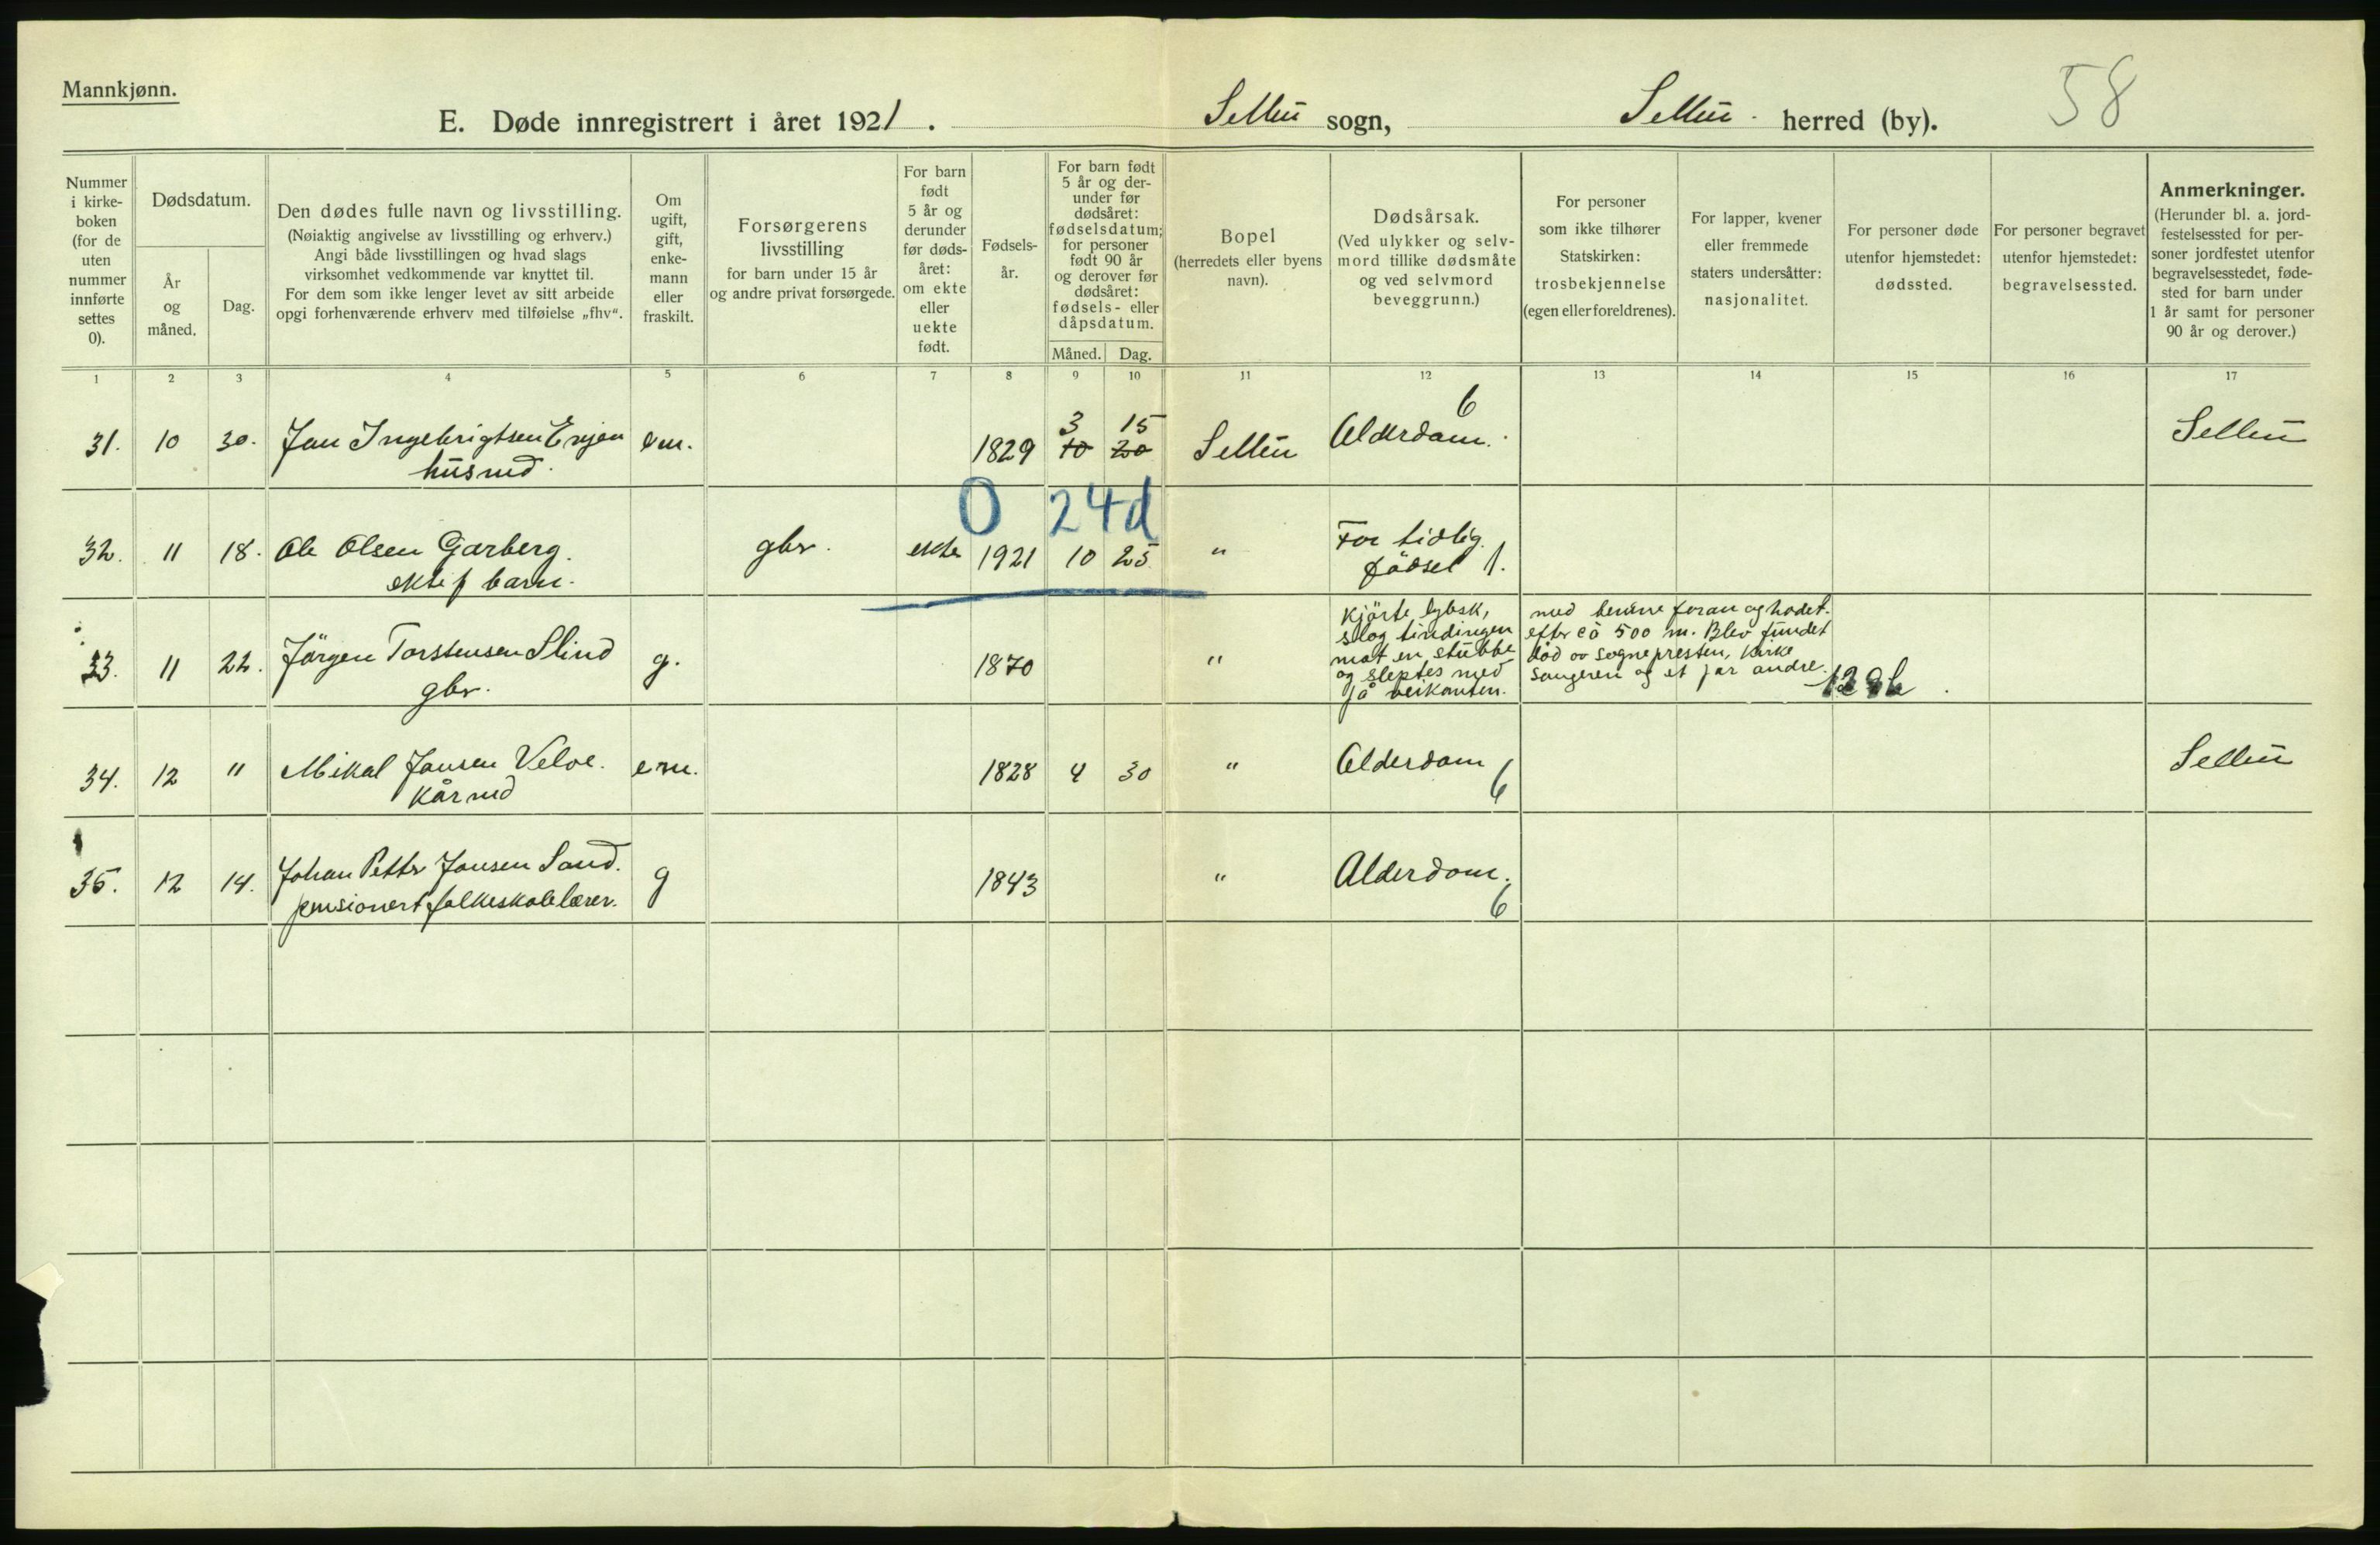 Mannkjønn.
E. Døde innregistrert i året 1921. Selbu sogn, Selbu herred (by). 58
Nummer i kirkeboken (for de uten nummer innførte settes 0).
Dødsdatum.
År og måned.
Dag.
Den dødes fulle navn og livsstilling.
(Nøiaktig angivelse av livsstilling og erhverv.)
Angi både livsstillingen og hvad slags
virksomhet vedkommende var knyttet til.
For dem som ikke lenger levet av sitt arbeide
opgi forhenværende erhverv med tilføielse „fhv“.
Om ugift, gift, enkemann eller fraskilt.
Forsørgerens livsstilling
for barn under 15 år
og andre privat forsørgede.
For barn født 5 år og derunder før dødsåret: om ekte eller uekte født.
Fødselsår.
For barn født 5 år og derunder før dødsåret: fødselsdatum; for personer født 90 år og derover før dødsåret: fødsels- eller dåpsdatum.
Måned. Dag.
Bopel
(herredets eller byens navn).
Dødsårsak.
(Ved ulykker og selvmord tillike dødsmåte og ved selvmord beveggrunn.)
For personer som ikke tilhører Statskirken: trosbekjennelse (egen eller foreldrenes).
For lapper, kvener eller fremmede staters undersåtter: nasjonalitet.
For personer døde utenfor hjemstedet: dødssted.
For personer begravet utenfor hjemstedet: begravelsessted.
Anmerkninger.
(Herunder bl. a. jordfestelsessted for personer jordfestet utenfor begravelsesstedet, fødested for barn under 1 år samt for personer 90 år og derover.)
1 2 3 4 5 6 7 8 9 10 11 12 13 14 15 16 17
31. 10 30. Jon Ingebrigtsen em. 1829 10 20 Selbu Alderdom. Selbu
3 15 6
husmd.
0 24d
32. 11 18. Ole Olsen Garberg. gbr. ekte 1921 10 25 " For tidlig
ektef barn. födsel 1.
33. 11 22. Jörgen Torstensen Slind g. 1870 "
gbr.
Kjörte lybsk, med benene foran og hodet.
slog tindingen efter ca 500 m. Blev fundet
mot en stubbe död av sognepresten, kirke
og sleptes med sangeren og et par andre.
på veikanten.
34. 12 " Mikal Jonsen Velve. em. 1828 4 30 " Alderdom Selbu
kårmd 6
35. 12 14. Johan Petter Jonsen Sand. g 1843 " Alderdom.
pensionert folkeskolelærer. 6